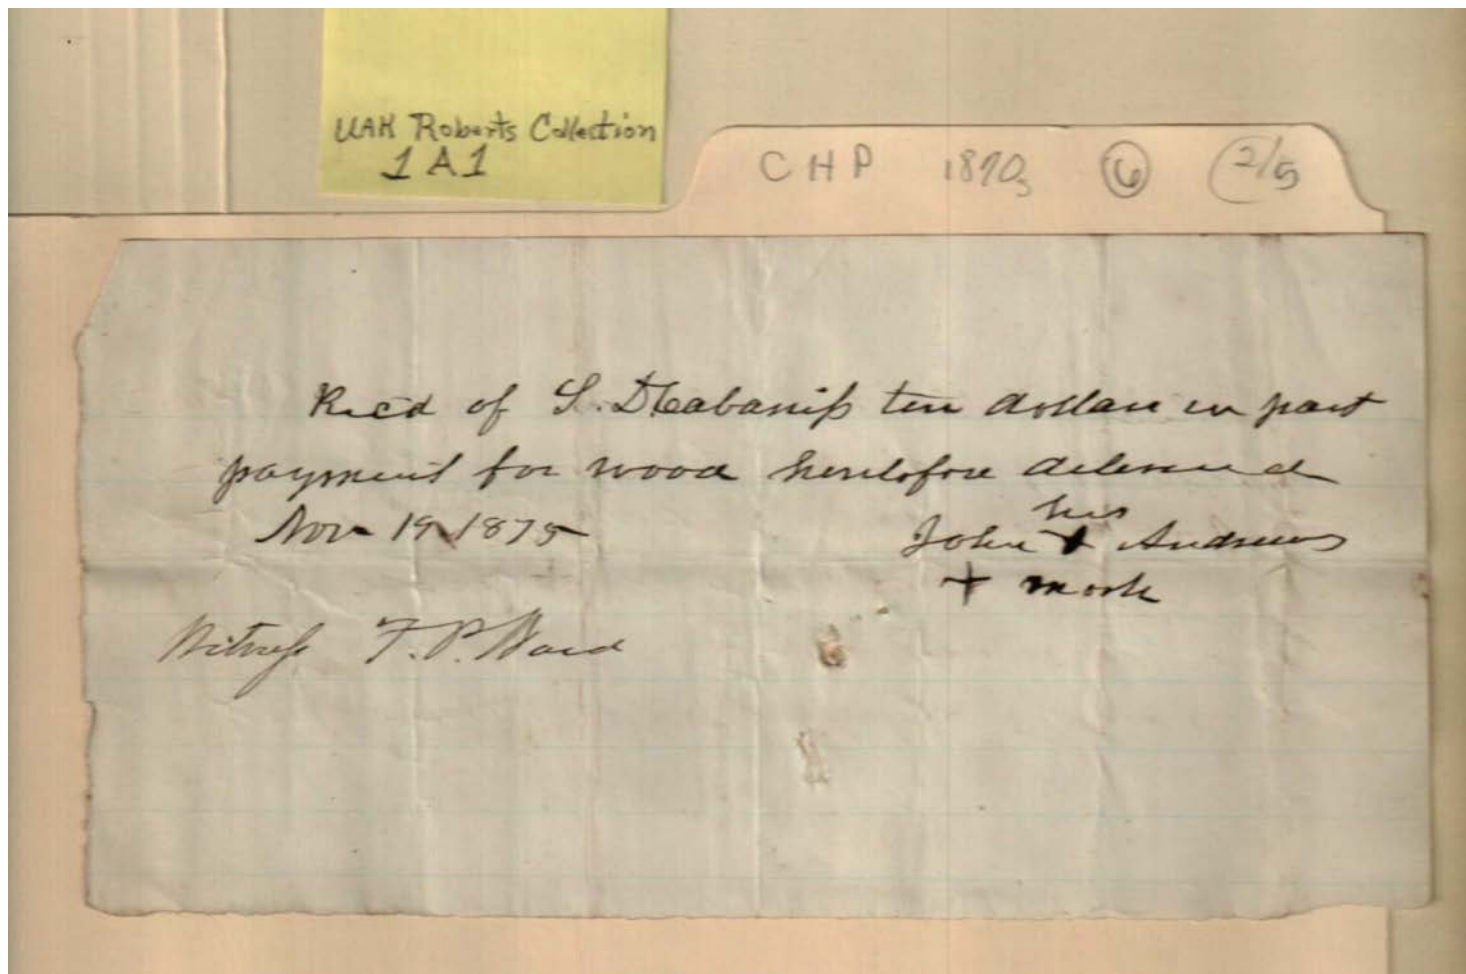 UAH Roberts Collection
1A1
CHP 1870s 6 2/5
Rec'd of S. D Cabaniss ten dollars in part
payment for wood heretofore delivered
his
Nov 19 1875 John + Andrews
+ mark
Witness F. P. Ward